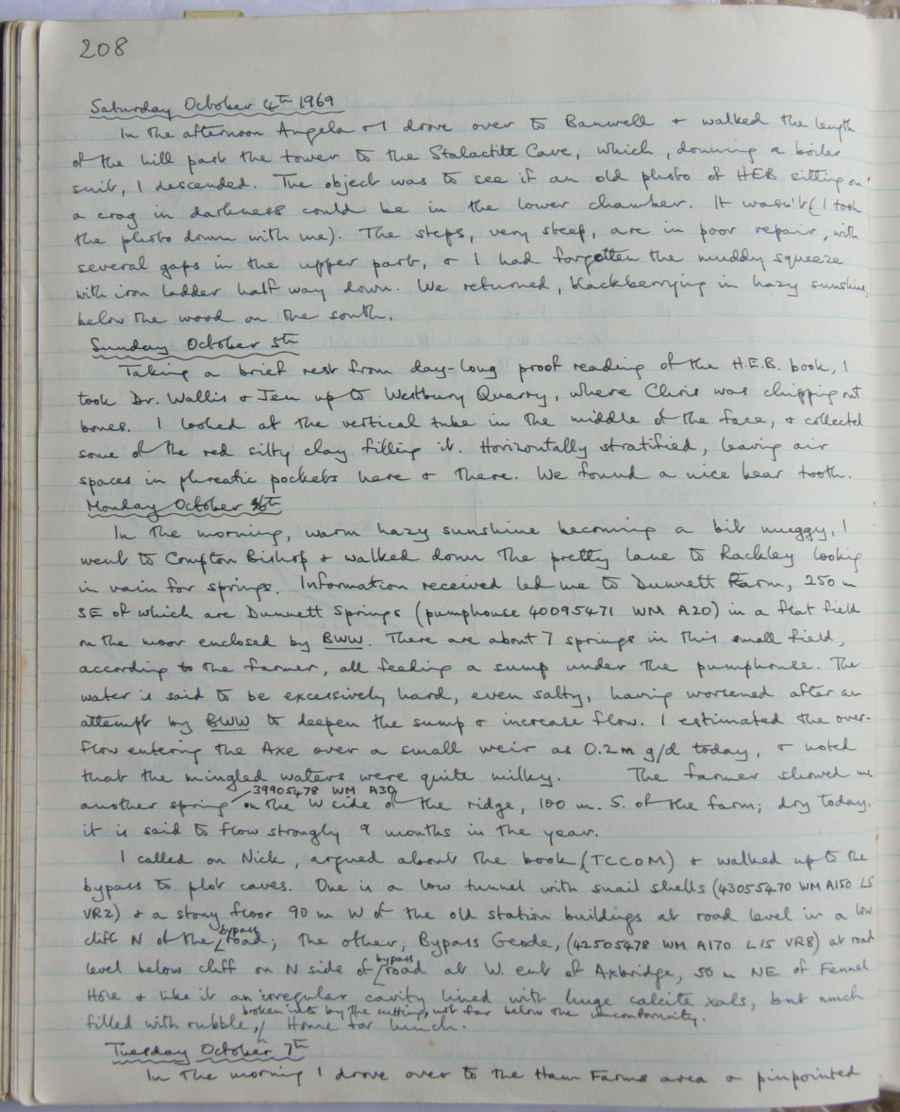 208
Saturday October 4th 1969
In the afternoon Angela & I drove over to Banwell & walked the length
of the hill past the tower to the Stalactite Cave, which, donning a boiler
suit, I descended. The object was to see if an old photo of HEB sitting on
a crag in darkness could be in the lower chamber. It wasn't (I took
the photo down with me). The steps, very steep, are in poor repair, with
several gaps in the upper part, & I had forgotten the muddy squeeze
with iron ladder half way down. We returned, blackberrying in hazy sunshine,
below the wood on the south.
Sunday October 5th
Taking a brief rest from day-long proof reading of the H.E.B. book, I
took Dr. Wallis & Jen up to Westbury Quarry, where Chris was chipping out
bones. I looked at the vertical tube in the middle of the face, & collected
some of the red silty clay filling it. Horizontally stratified, leaving air
spaces in phreatic pockets here & there. We found a nice bear tooth.
Monday October 6th
In the morning, warm hazy sunshine becoming a bit muggy, I
went to Compton Bishop & walked down the pretty lane to Rackley looking
in vain for springs. Information received led me to Dunnett Farm, 250 m
SE of which are Dunnett Springs (pumphouse 40095471 WM A20) in a flat field
on the moor enclosed by BWW. There are about 7 springs in this small field,
according to the farmer, all feeding a sump under the pumphouse. The
water is said to be excessively hard, even salty, having worsened after an
attempt by BWW to deepen the sump & increase flow. I estimated the over-
flow entering the Axe over a small weir as 0.2 m g/d today, & noted
that the mingled waters were quite milky. The farmer showed me
another spring 39905478 WM A30 on the W side of the ridge, 100 m. S. of the farm; dry today,
it is said to flow strongly 9 months in the year.
I called on Nick, argued about the book (TCCOM) & walked up to the
bypass to plot caves. One is a low tunnel with snail shells (43055470 WM A150 L5
VR2) & a stony floor 90 m W of the old station buildings at road level in a low
cliff N of the bypass road; the other, Bypass Geode, (42505478 WM A170 L15 VR8) at road
level below cliff on N side of bypass road at W. exit of Axbridge, 50 m NE of Fennel
Hole & like it an irregular cavity lined with huge calcite xals, but much
filled with rubble, broken into by the cutting, not far below the unconformity. Home for lunch.
Tuesday October 7th
In the morning I drove over to the Ham Farms area & pinpointed